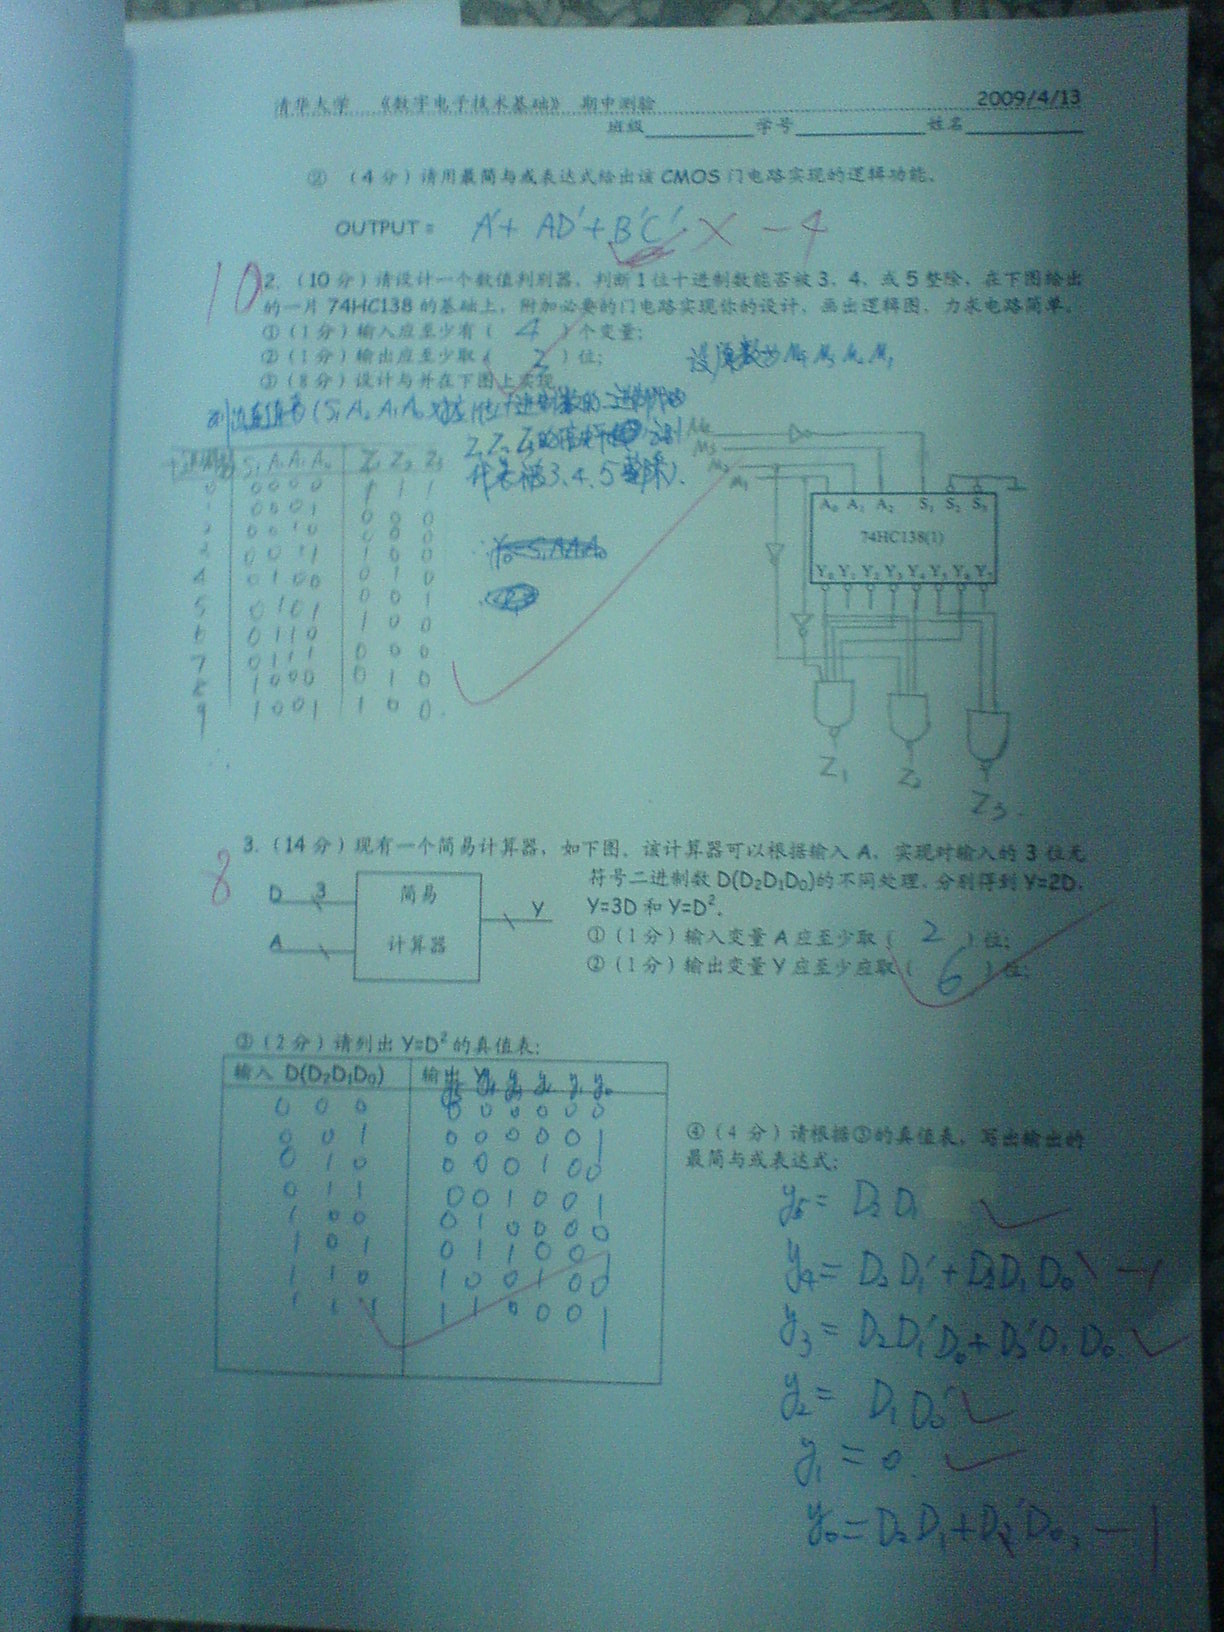 清华大学 《数字电子技术基础》 期中测验 2009/4/13
班级 学号 姓名
② （4分）请用最简与或表达式给出该CMOS门电路实现的逻辑功能。
OUTPUT = A'+ AD'+B'C' × -4
10
2.（10分）请设计一个数值判别器，判断1位十进制数能否被3、4、或5整除，在下图给出
的一片74HC138的基础上，附加必要的门电路实现你的设计，画出逻辑图，力求电路简单。
①（1分）输入应至少有（ 4 ）个变量；
②（1分）输出应至少取（ 2 ）位；
③（8分）设计与并在下图上实现
S₁ A₂ A₁ A₀ Z₁ Z₂ Z₃
0 0 0 0 0 1 1 1
1 0 0 0 1 0 0 0
2 0 0 1 0 0 0 0
3 0 0 1 1 1 0 0
4 0 1 0 0 0 1 0
5 0 1 0 1 0 0 1
6 0 1 1 0 1 0 0
7 0 1 1 1 0 0 0
8 1 0 0 0 0 1 0
9 1 0 0 1 1 0 0
代表被3、4、5整除）.
A₀ A₁ A₂ S₁ S₂ S₃
74HC138(1)
Y₀ Y₁ Y₂ Y₃ Y₄ Y₅ Y₆ Y₇
Z₁ Z₂ Z₃
8
3.（14分）现有一个简易计算器，如下图。该计算器可以根据输入A，实现对输入的3位无
符号二进制数D(D₂D₁D₀)的不同处理，分别得到Y=2D，
Y=3D和Y=D²。
D 3 简易 Y
A 计算器
①（1分）输入变量A应至少取（ 2 ）位；
②（1分）输出变量Y应至少应取（ 6 ）位；
③（2分）请列出Y=D²的真值表；
输入 D(D₂D₁D₀) 输出 Y y₅ y₄ y₃ y₂ y₁ y₀
0 0 0 0 0 0 0 0 0
0 0 1 0 0 0 0 0 1
0 1 0 0 0 0 1 0 0
0 1 1 0 0 1 0 0 1
1 0 0 0 1 0 0 0 0
1 0 1 0 1 1 0 0 1
1 1 0 1 0 0 1 0 0
1 1 1 1 1 0 0 0 1
④（4分）请根据③的真值表，写出输出的
最简与或表达式；
y₅= D₂D₁
y₄= D₂D₁'+D₂D₁D₀ -1
y₃= D₂D₁'D₀+D₂'D₁D₀
y₂= D₁D₀'
y₁ = 0.
y₀=D₂D₁+D₂'D₀, -1